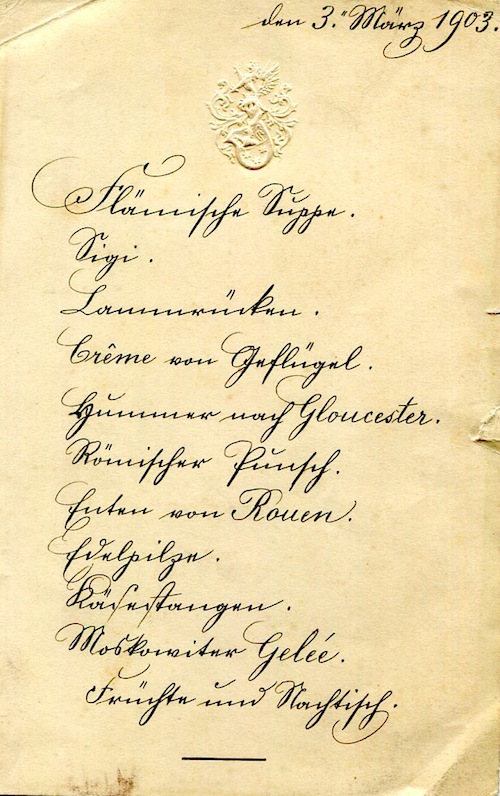 den 3. März 1903.
Flämische Suppe.
Sigi.
Lammrücken.
Crême von Geflügel.
Hummer nach Gloucester.
Römischer Punsch.
Enten von Rouen.
Edelpilze.
Käsestangen.
Moskowiter Gelée.
Früchte und Nachtisch.